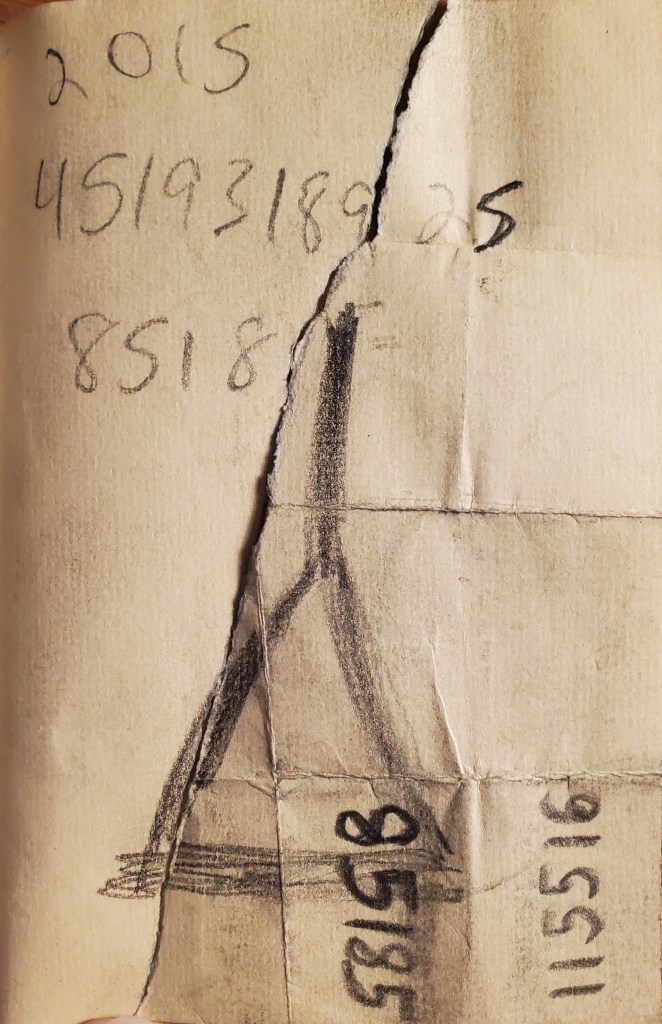 2015
45193189 25
8518
85185
115516